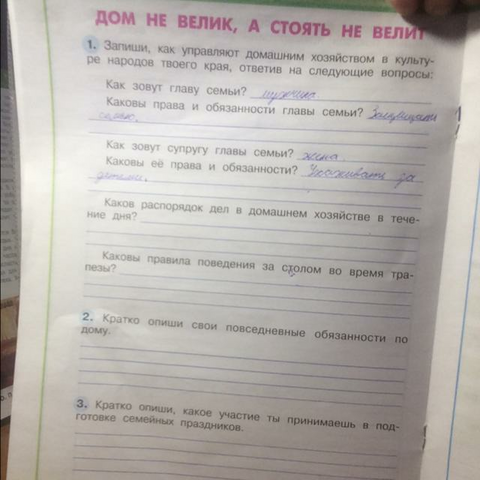 ДОМ НЕ ВЕЛИК, А СТОЯТЬ НЕ ВЕЛИТ
1. Запиши, как управляют домашним хозяйством в культу-
ре народов твоего края, ответив на следующие вопросы:
Как зовут главу семьи? мужчина
Каковы права и обязанности главы семьи? Защищать
семью.
Как зовут супругу главы семьи? жена
Каковы её права и обязанности? Ухаживать за
детьми.
Каков распорядок дел в домашнем хозяйстве в тече-
ние дня?
Каковы правила поведения за столом во время тра-
пезы?
2. Кратко опиши свои повседневные обязанности по
дому.
3. Кратко опиши, какое участие ты принимаешь в под-
готовке семейных праздников.